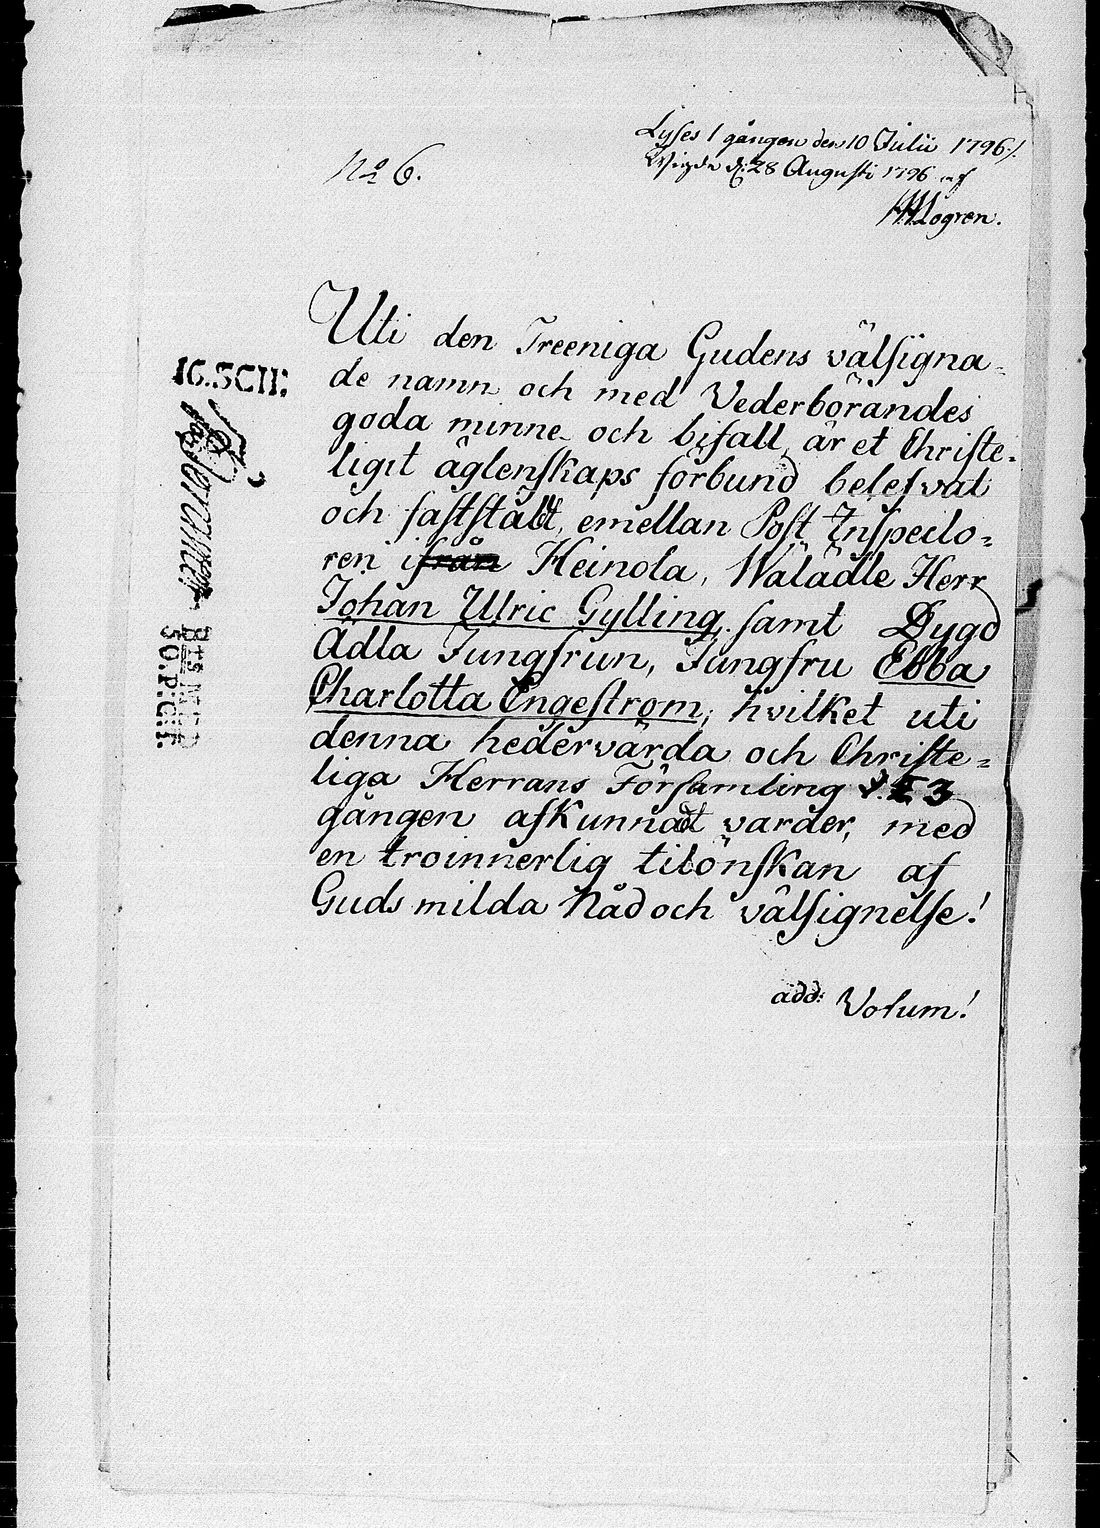 No 6.
Lyses 1 gången den 10 Julii 1796./.
Wigde d: 28 Augusti 1796 af
Logren.
Uti den Treeniga Gudens välsigna-
de namn och med Vederbörandes
goda minne och bifall, är et Christe-
ligit äglenskaps förbund belefvat
och fastståldt, emellan Post Inspecto-
ren i från Heinola, Wälädle Herr
Johan Ulric Gylling, samt Dygd
Ädla Jungfrun, Jungfru Ebba
Charlotta Engeström, hvilket uti
denna hedervärda och Christe-
liga Herrans Församling 3
gången afkunnadt varder, med
en troinnerlig tilönskan af
Guds milda Nåd och välsignelse!
add: Votum!
16.SCII: